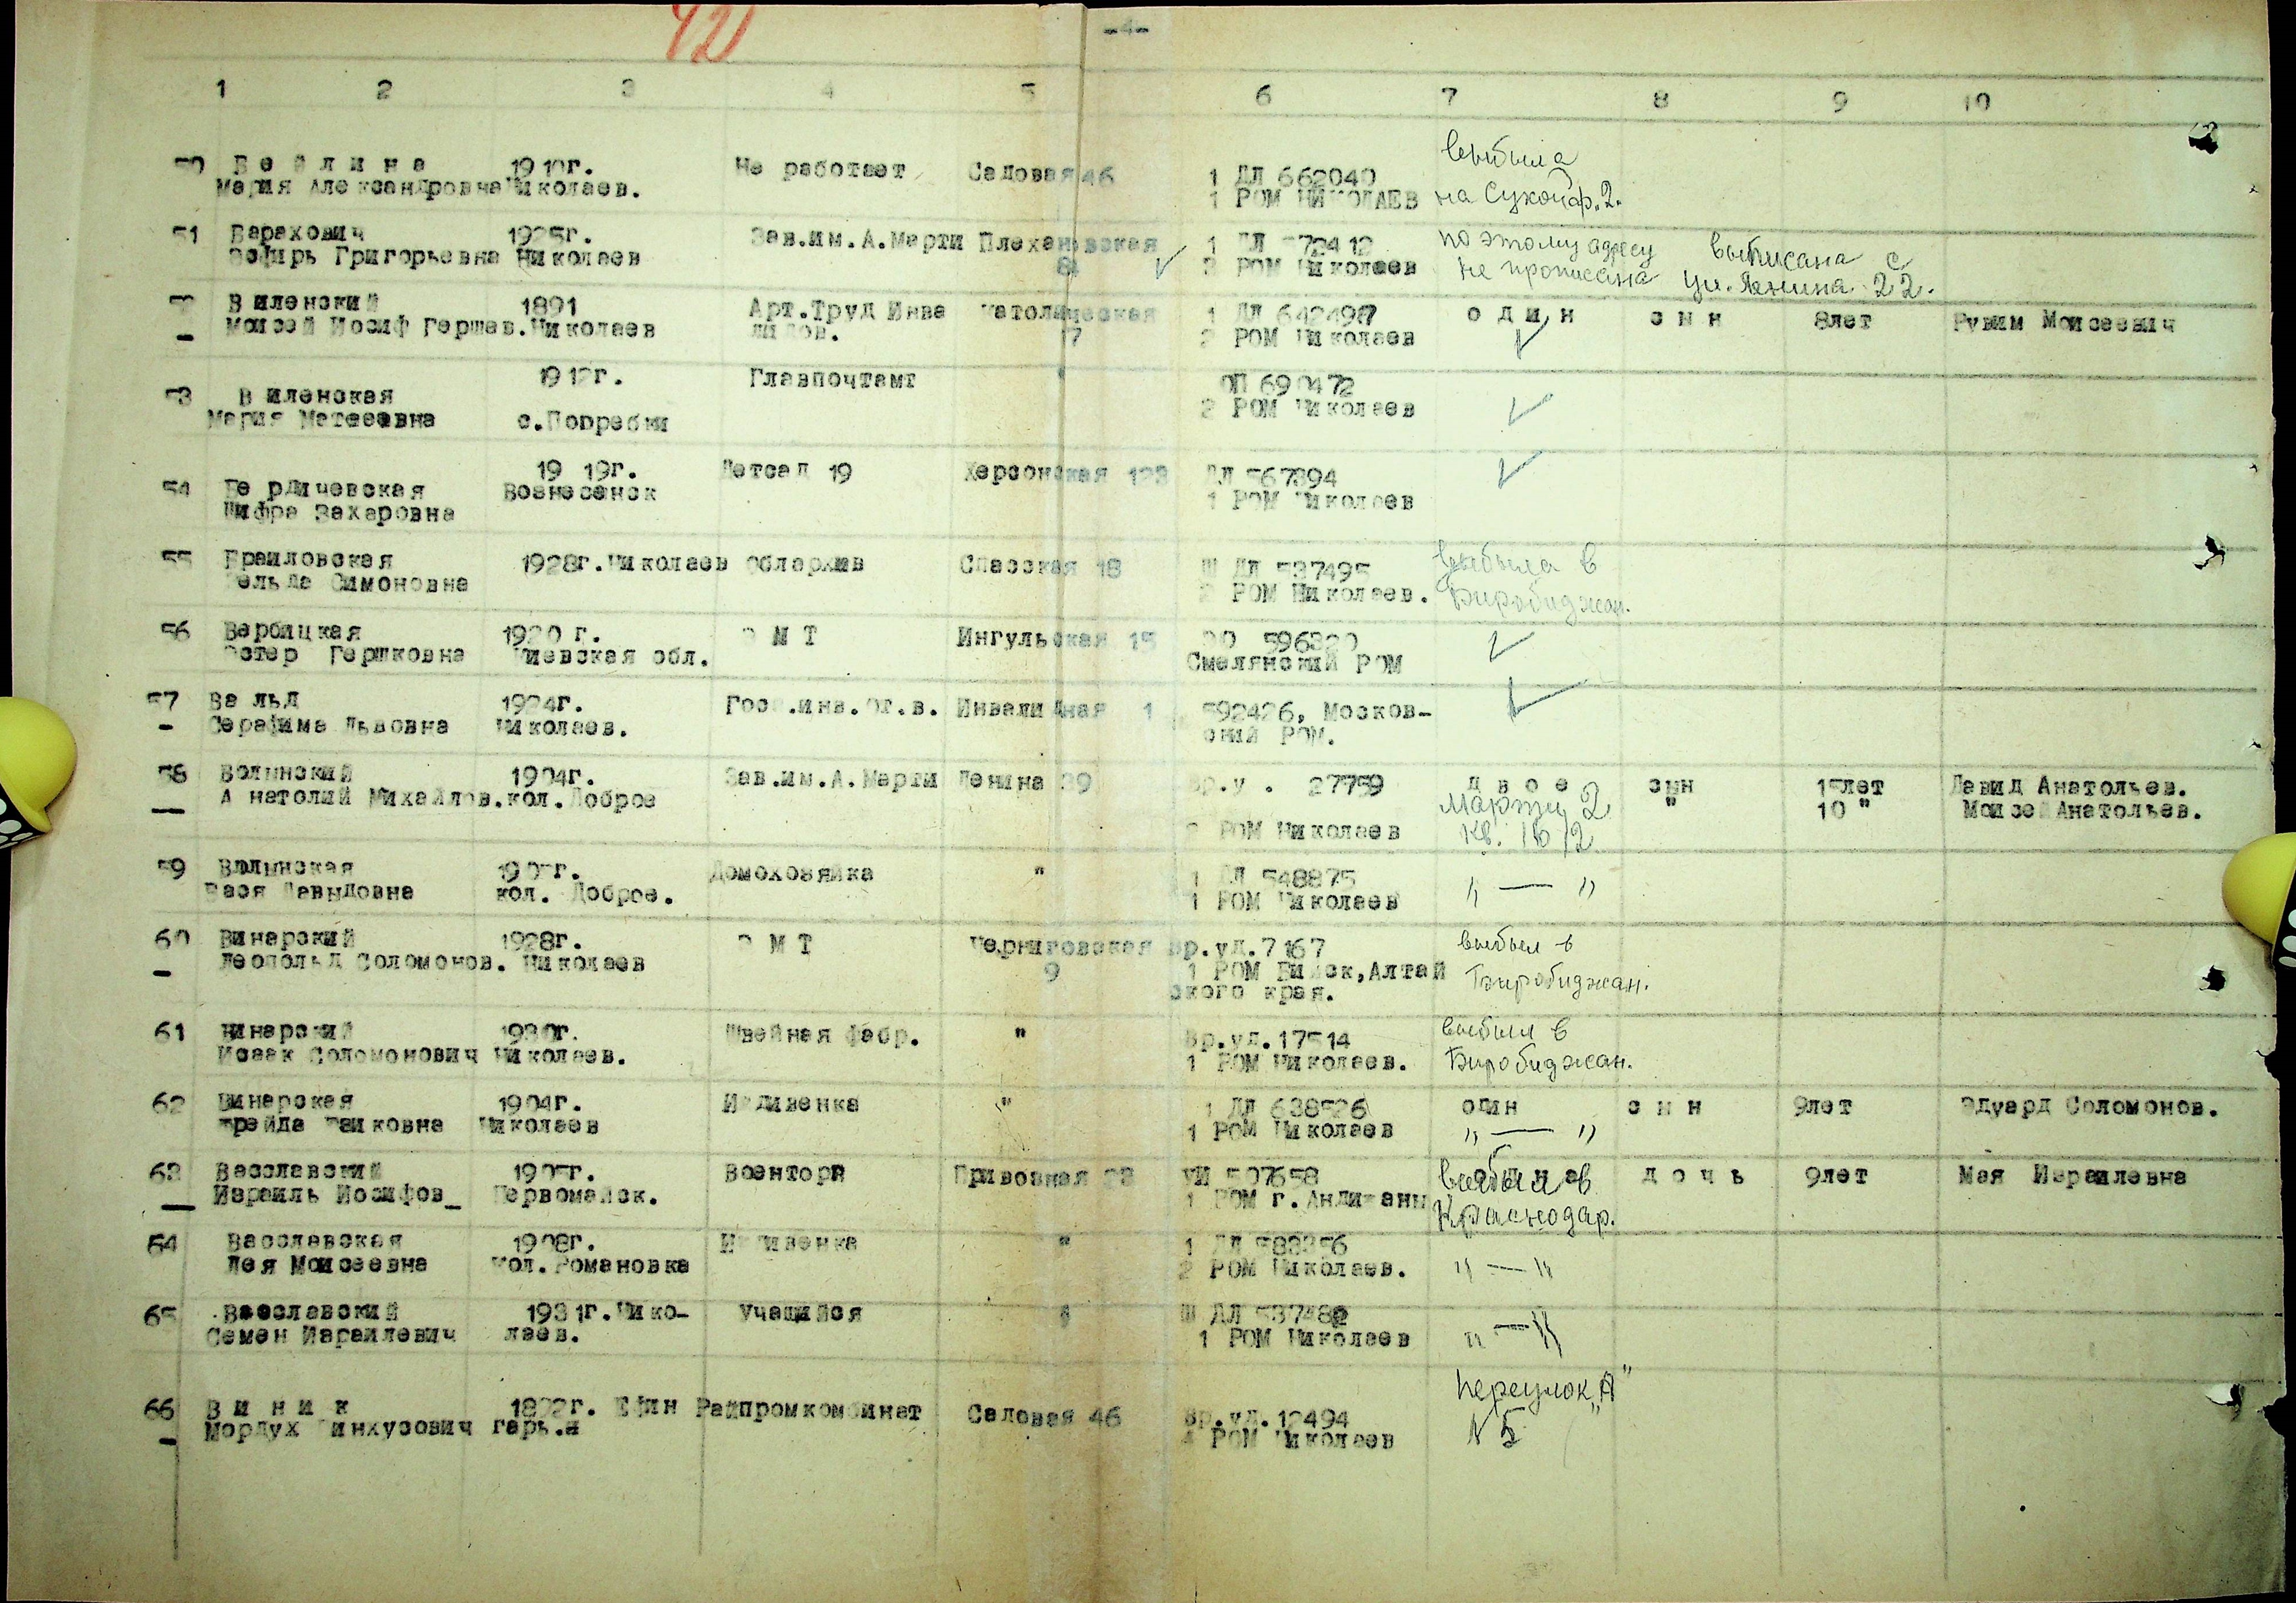 42
-4-
1 2 3 4 5 6 7 8 9 10
50 Вейлина 1910г. Не работает Садовая 46 1 ДЛ 662040 выбыла
Мария Александровна Николаев. 1 РОМ НИКОЛАЕВ на Сухоф.2.
51 Варахович 1925г. Зав.им.А.Марти Плехановская 1 ДЛ 572412 по этому адресу выписана с
Эсфирь Григорьевна Николаев 84 2 РОМ Николаев не прописана ул. Ленина 22.
Виленский 1891 Арт.Труд Инва Католическая 1 ДЛ 642498 один сын 8лет Рувим Моисеевич
Моисей Иосиф Гершев. Николаев лидов. 17 2 РОМ Николаев
1912г. Главпочтамт " ОП 690472
53 Виленская 2 РОМ Николаев
Мария Матвеевна с.Погребы
1919г. Детсад 19 Херсонская 123 ДЛ 567394
54 Бердичевская Вознесенск 1 РОМ Николаев
Шифра Захаровна
55 Браиловская 1928г. Николаев Облархив Спасская 18 Ш ДЛ 537495 выбыла в
Симоновна 2 РОМ Николаев. Биробиджан.
56 Вербицкая 1920 г. ОМТ Ингульская 15 596320
Эстер Гершковна Киевская обл. Смелянский РОМ
57 Вальд 1924г. Гос .инв.От.в. Инвалидная 1 592426, Москов-
Серафима Львовна Николаев. ский РОМ.
58 Волынский 1904г. Зав.им.А.Марти Ленина 39 Вр.у . 27759 двое сын 15лет Давид Анатольев.
Анатолий Михайлов. кол. Доброе Марти 2 " 10 " Моисей Анатольев.
2 РОМ Николаев кв.
59 Волынская Домохозяйка " 1 ДЛ 548875
Бася Давыдовна кол. Доброе. 1 РОМ Николаев " — "
60 Винарский 1928г. ОМТ Черниговская Вр.уд.7167 выбыл в
Леопольд Соломонов. Николаев 9 1 РОМ Бийск,Алтай Биробиджан.
ского края.
61 Винарский 1930г. Швейная фабр. " Вр.уд.17514 выбыл в
Исаак Соломонович Николаев. 1 РОМ Николаев. Биробиджан.
62 Винарская 1904г. Иждивенка " 1 ДЛ 638526 один сын 9лет Эдуард Соломонов.
Фрейда Николаев 1 РОМ Николаев " — "
63 Васславский Военторг Привозная 28 УИ 507658 выбыл в дочь 9лет Мая Израилевна
Израиль Иосифов_ Первомайск. 1 РОМ г. Краснодар.
64 Васславская 1908г. Иждивенка " 1 ДЛ 588356
Лея Моисеевна кол.Романовка 2 РОМ Николаев. " — "
65 Васславский 1931г. Нико- Учащийся " Ш ДЛ 537482
Семен Израилевич лаев. 1 РОМ Николаев " — "
66 Виник Райпромкомбинат Садовая 46 Вр.уд.12494 переулок „А"
Мордух Пинхусович гарь.я 4 РОМ Николаев N 5